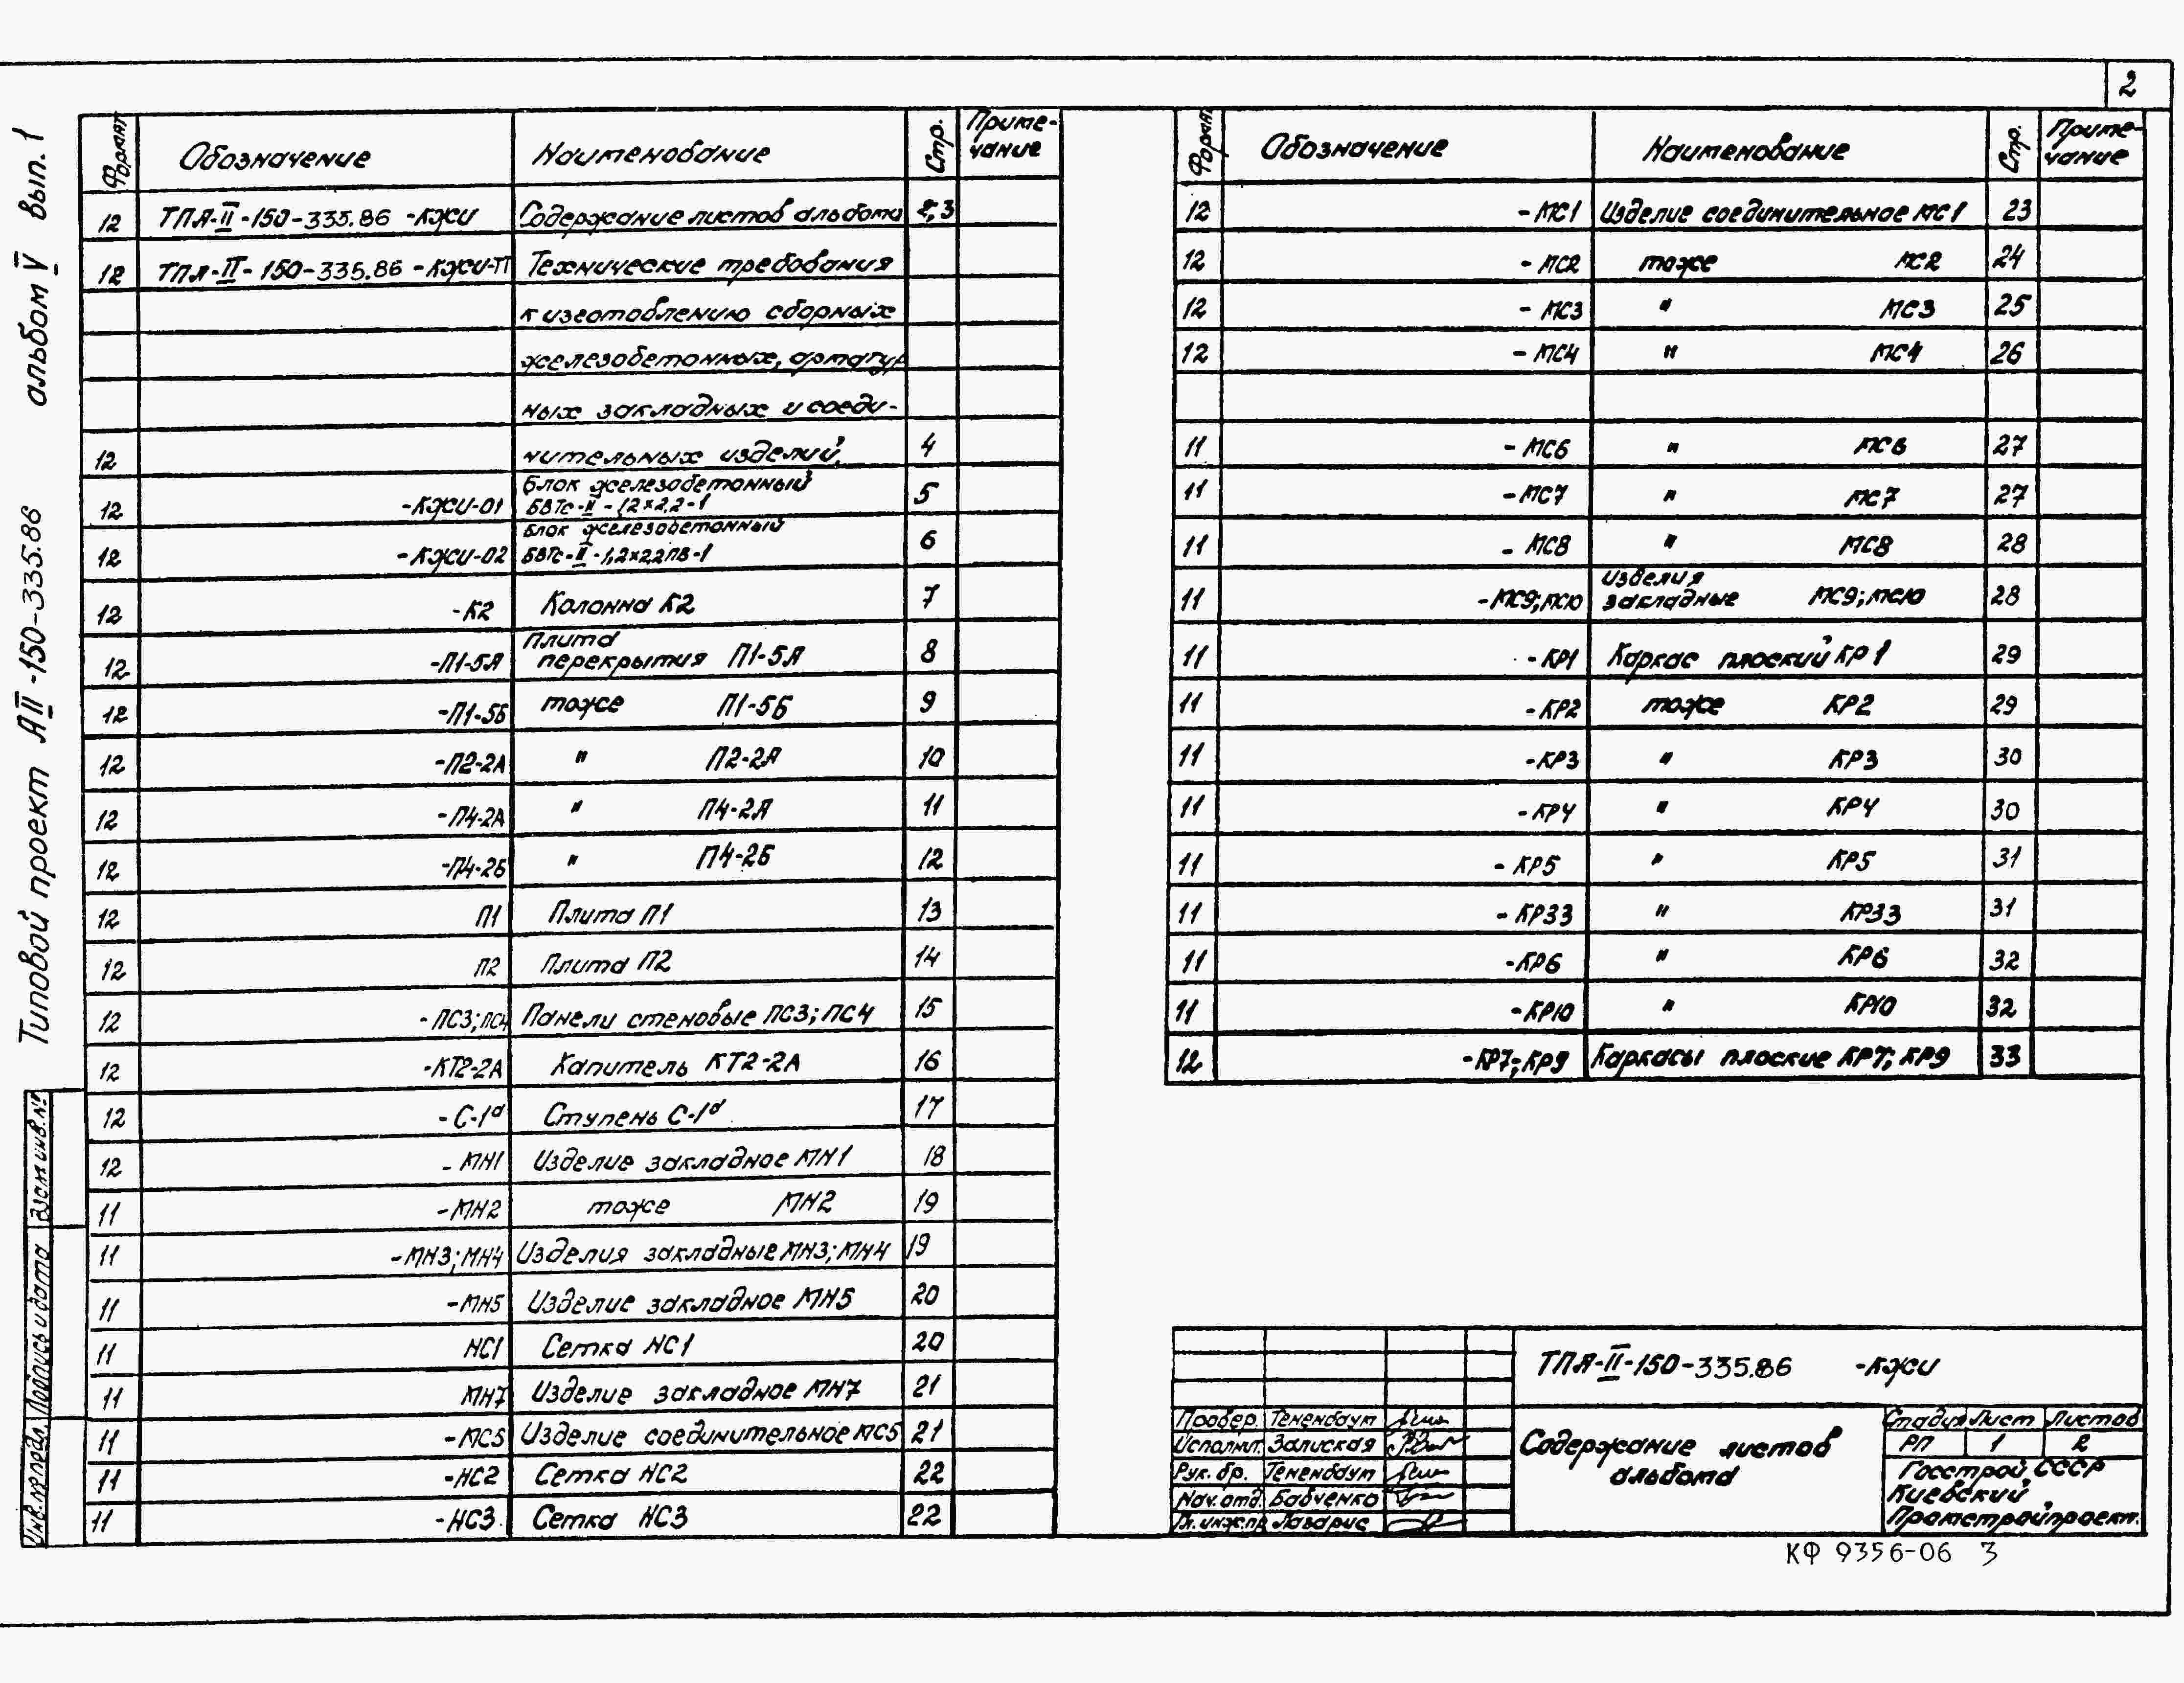 2
Типовой проект АII-150-335.86 альбом V вып. 1
Формат Обозначение Наименование Стр. Приме-
чание
12 ТПА-II-150-335.86 -КЖИ Содержание листов альбома 2,3
12 ТПА-II-150-335.86 -КЖИ-ТТ Технические требования
к изготовлению сборных
железобетонных, арматур
ных закладных и соеди-
12 нительных изделий. 4
12 -КЖИ-01 Блок железобетонный
БВТс-II-12×2,2-1 5
12 -КЖИ-02 Блок железобетонный
БВТс-II-1,2×2,2ПВ-1 6
12 -К2 Колонна К2 7
12 -П1-5А Плита
перекрытия П1-5А 8
12 -П1-5Б тоже П1-5Б 9
12 -П2-2А " П2-2А 10
12 -П4-2А " П4-2А 11
12 -П4-2Б " П4-2Б 12
12 П1 Плита П1 13
12 П2 Плита П2 14
12 -ПС3;ПС4 Панели стеновые ПС3; ПС4 15
12 -КТ2-2А Капитель КТ2-2А 16
12 -С-1ᵈ Ступень С-1ᵈ 17
12 -МН1 Изделие закладное МН1 18
11 -МН2 тоже МН2 19
11 -МН3;МН4 Изделия закладные МН3; МН4 19
11 -МН5 Изделие закладное МН5 20
11 НС1 Сетка НС1 20
11 МН7 Изделие закладное МН7 21
11 -МС5 Изделие соединительное МС5 21
11 -НС2 Сетка НС2 22
11 -НС3 Сетка НС3 22
Формат Обозначение Наименование Стр. Приме-
чание
12 -МС1 Изделие соединительное МС1 23
12 -МС2 тоже МС2 24
12 -МС3 " МС3 25
12 -МС4 " МС4 26
11 -МС6 " МС6 27
11 -МС7 " МС7 27
11 -МС8 " МС8 28
11 -МС9;МС10 изделия
закладные МС9;МС10 28
11 -КР1 Каркас плоский КР1 29
11 -КР2 тоже КР2 29
11 -КР3 " КР3 30
11 -КР4 " КР4 30
11 -КР5 " КР5 31
11 -КР33 " КР33 31
11 -КР6 " КР6 32
11 -КР10 " КР10 32
12 -КР7;КР9 Каркасы плоские КР7; КР9 33
Инв. № подл. Подпись и дата Взам инв. №
ТПА-II-150-335.86 -КЖИ
Провер. Тененбаум
Исполнит. Залиская
Рук. бр. Тененбаум
Нач. отд. Бабченко
Гл. инж.пр Лазарис
Содержание листов
альбома
Стадия Лист Листов
РП 1 2
Госстрой СССР
Киевский
Промстройпроект.
КФ 9356-06 3